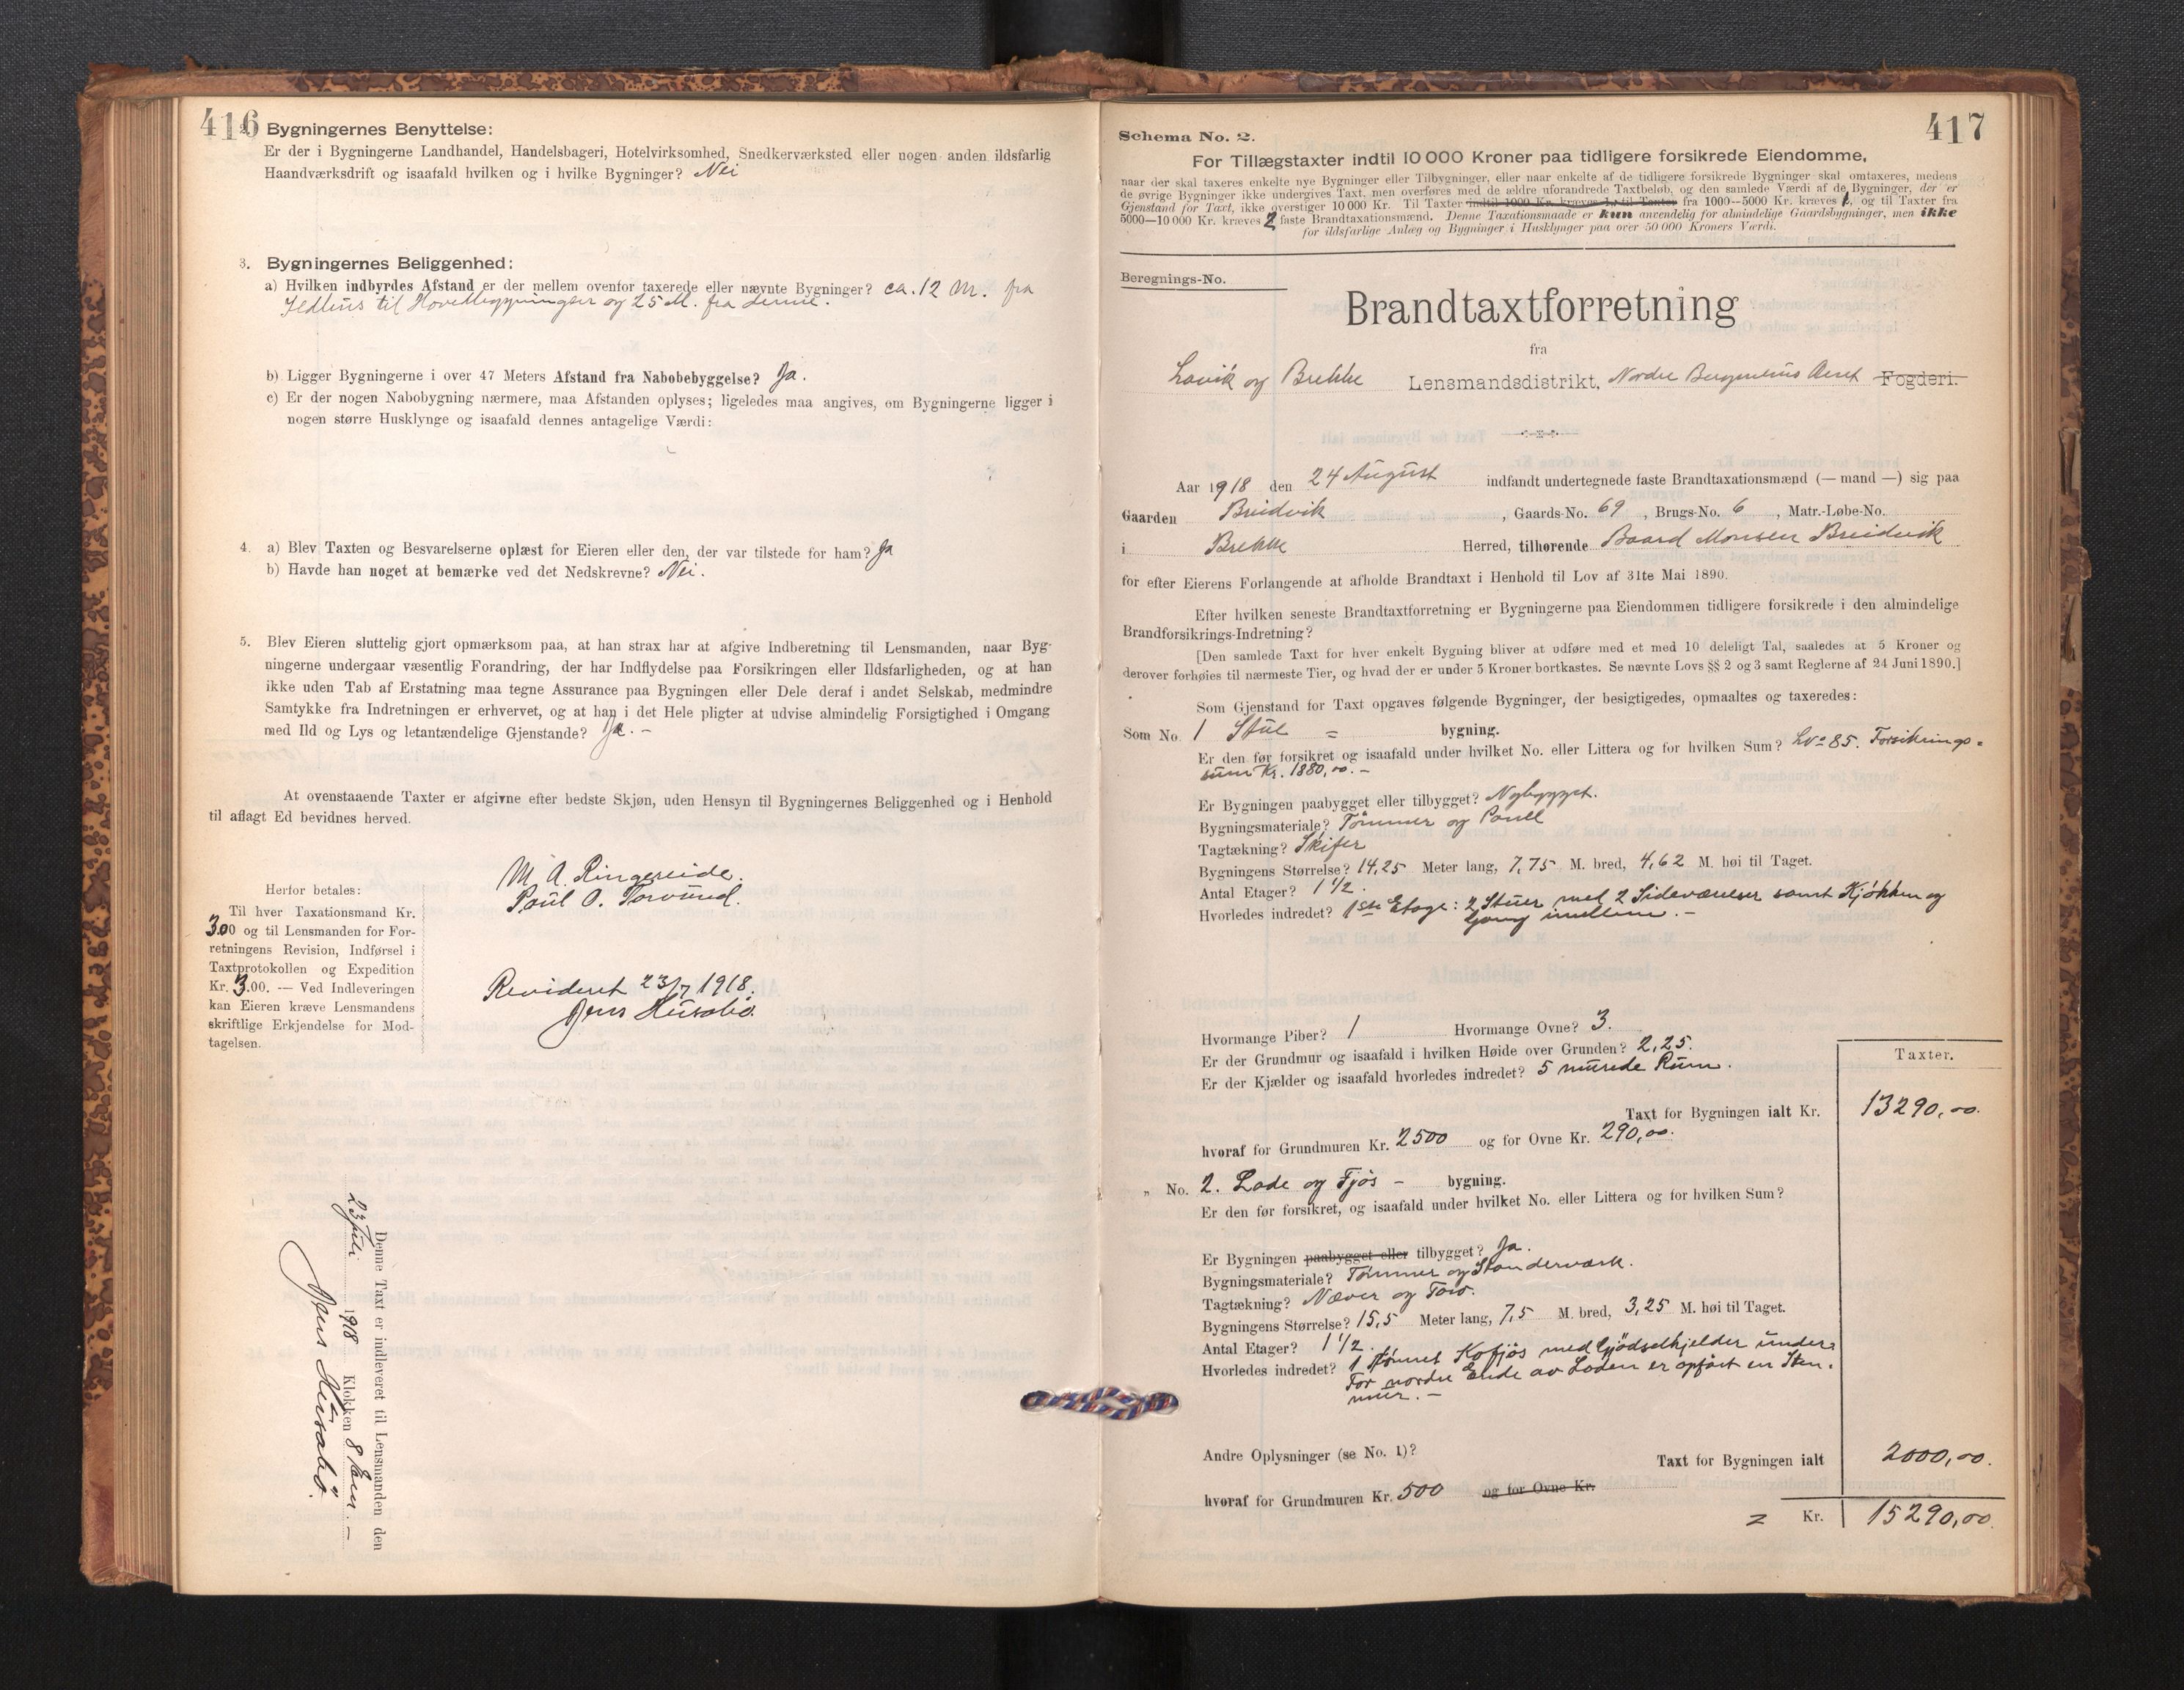 416
Bygningernes Benyttelse:
Er der i Bygningerne Landhandel, Handelsbageri, Hotelvirksomhed, Snedkerværksted eller nogen anden ildsfarlig
Haandværksdrift og isaafald hvilken og i hvilke Bygninger? Nei
3. Bygningernes Beliggenhed:
a) Hvilken indbyrdes Afstand er der mellem ovenfor taxerede eller nævnte Bygninger? ca. 12 M. fra
Ildhus til Hovedbygninger og 25 M. fra denne.
b) Ligger Bygningerne i over 47 Meters Afstand fra Nabobebyggelse? Ja.
c) Er der nogen Nabobygning nærmere, maa Afstanden oplyses; ligeledes maa angives, om Bygningerne ligger i
nogen større Husklynge og isaafald dennes antagelige Værdi:
4. a) Blev Taxten og Besvarelserne oplæst for Eieren eller den, der var tilstede for ham? Ja
b) Havde han noget at bemærke ved det Nedskrevne? Nei.
5. Blev Eieren sluttelig gjort opmærksom paa, at han strax har at afgive Indberetning til Lensmanden, naar Byg-
ningerne undergaar væsentlig Forandring, der har Indflydelse paa Forsikringen eller Ildsfarligheden, og at han
ikke uden Tab af Erstatning maa tegne Assurance paa Bygningen eller Dele deraf i andet Selskab, medmindre
Samtykke fra Indretningen er erhvervet, og at han i det Hele pligter at udvise almindelig Forsigtighed i Omgang
med Ild og Lys og letantændelige Gjenstande? Ja. -
At ovenstaaende Taxter er afgivne efter bedste Skjøn, uden Hensyn til Bygningernes Beliggenhed og i Henhold
til aflagt Ed bevidnes herved.
M. A. Ringereide.
Poul O. Torvund.
Herfor betales:
Til hver Taxationsmand Kr.
3.00 og til Lensmanden for For-
retningens Revision, Indførsel i
Taxtprotokollen og Expedition
Kr. 3.00. — Ved Indleveringen
kan Eieren kræve Lensmandens
skriftlige Erkjendelse for Mod-
tagelsen.
Revideret 23/7 1918.
Jens Husabø
Denne Taxt er indleveret til Lensmanden den
23 Juli 1918 Klokken 8 Em. -
Jens Husabø.
417
Schema No. 2.
For Tillægstaxter indtil 10 000 Kroner paa tidligere forsikrede Eiendomme,
naar der skal taxeres enkelte nye Bygninger eller Tilbygninger, eller naar enkelte af de tidligere forsikrede Bygninger skal omtaxeres, medens
de øvrige Bygninger ikke undergives Taxt, men overføres med de ældre uforandrede Taxtbeløb, og den samlede Værdi af de Bygninger, der er
Gjenstand for Taxt, ikke overstiger 10 000 Kr. Til Taxter indtil 1000 Kr. kræves 1, til Taxter fra 1000—5000 Kr. kræves 1, og til Taxter fra
5000—10 000 Kr. kræves 2 faste Brandtaxationsmænd. Denne Taxationsmaade er kun anvendelig for almindelige Gaardsbygninger, men ikke
for ildsfarlige Anlæg og Bygninger i Husklynger paa over 50 000 Kroners Værdi.
Beregnings-No.
Brandtaxtforretning
fra
Lavik og Brekke Lensmandsdistrikt, Nordre Bergenhus Amt Fogderi.
Aar 1918 den 24 August indfandt undertegnede faste Brandtaxationsmænd (— mand —) sig paa
Gaarden Breidvik, Gaards-No. 69, Brugs-No. 6, Matr.-Løbe-No.
i Brekke Herred, tilhørende Baard Monsen Breidvik
for efter Eierens Forlangende at afholde Brandtaxt i Henhold til Lov af 31te Mai 1890.
Efter hvilken seneste Brandtaxtforretning er Bygningerne paa Eiendommen tidligere forsikrede i den almindelige
Brandforsikrings-Indretning?
[Den samlede Taxt for hver enkelt Bygning bliver at udføre med et med 10 deleligt Tal, saaledes at 5 Kroner og
derover forhøies til nærmeste Tier, og hvad der er under 5 Kroner bortkastes. Se nævnte Lovs §§ 2 og 3 samt Reglerne af 24 Juni 1890.]
Som Gjenstand for Taxt opgaves følgende Bygninger, der besigtigedes, opmaaltes og taxeredes:
Som No. 1 Stue = bygning.
Er den før forsikret og isaafald under hvilket No. eller Littera og for hvilken Sum? Lno 85. Forsikrings-
sum Kr. 1880,00. -
Er Bygningen paabygget eller tilbygget? Nybygget.
Bygningsmateriale? Tømmer og Panell
Tagtækning? Skifer
Bygningens Størrelse? 14,25 Meter lang, 7,75 M. bred, 4,62 M. høi til Taget.
Antal Etager? 1 1/2.
Hvorledes indredet? 1ste Etage: 2 Stuer med 2 Sideværelser samt Kjøkken og
Gang imellem. -
Hvormange Piber? 1 Hvormange Ovne? 3.
Er der Grundmur og isaafald i hvilken Høide over Grunden? 2,25.
Er der Kjælder og isaafald hvorledes indredet? 5 murede Rum.
Taxter.
Taxt for Bygningen ialt Kr. 13290,00.
hvoraf for Grundmuren Kr. 2500 og for Ovne Kr. 290,00.
„ No. 2. Lade og Fjøs - bygning.
Er den før forsikret, og isaafald under hvilket No. eller Littera og for hvilken Sum?
Er Bygningen paabygget eller tilbygget? Ja.
Bygningsmateriale? Tømmer og Standerværk.
Tagtækning? Næver og Torv.
Bygningens Størrelse? 15,5 Meter lang, 7,5 M. bred, 3,25 M. høi til Taget.
Antal Etager? 1 1/2.
Hvorledes indredet? 1 tømret Kofjøs med Gjødselkjelder under.
For nordre Ende av Laden er opført en Sten-
mur. -
Andre Oplysninger (se No. 1)? Taxt for Bygningen ialt 2000,00.
hvoraf for Grundmuren Kr. 500 og for Ovne Kr.
Kr. 15290,00.